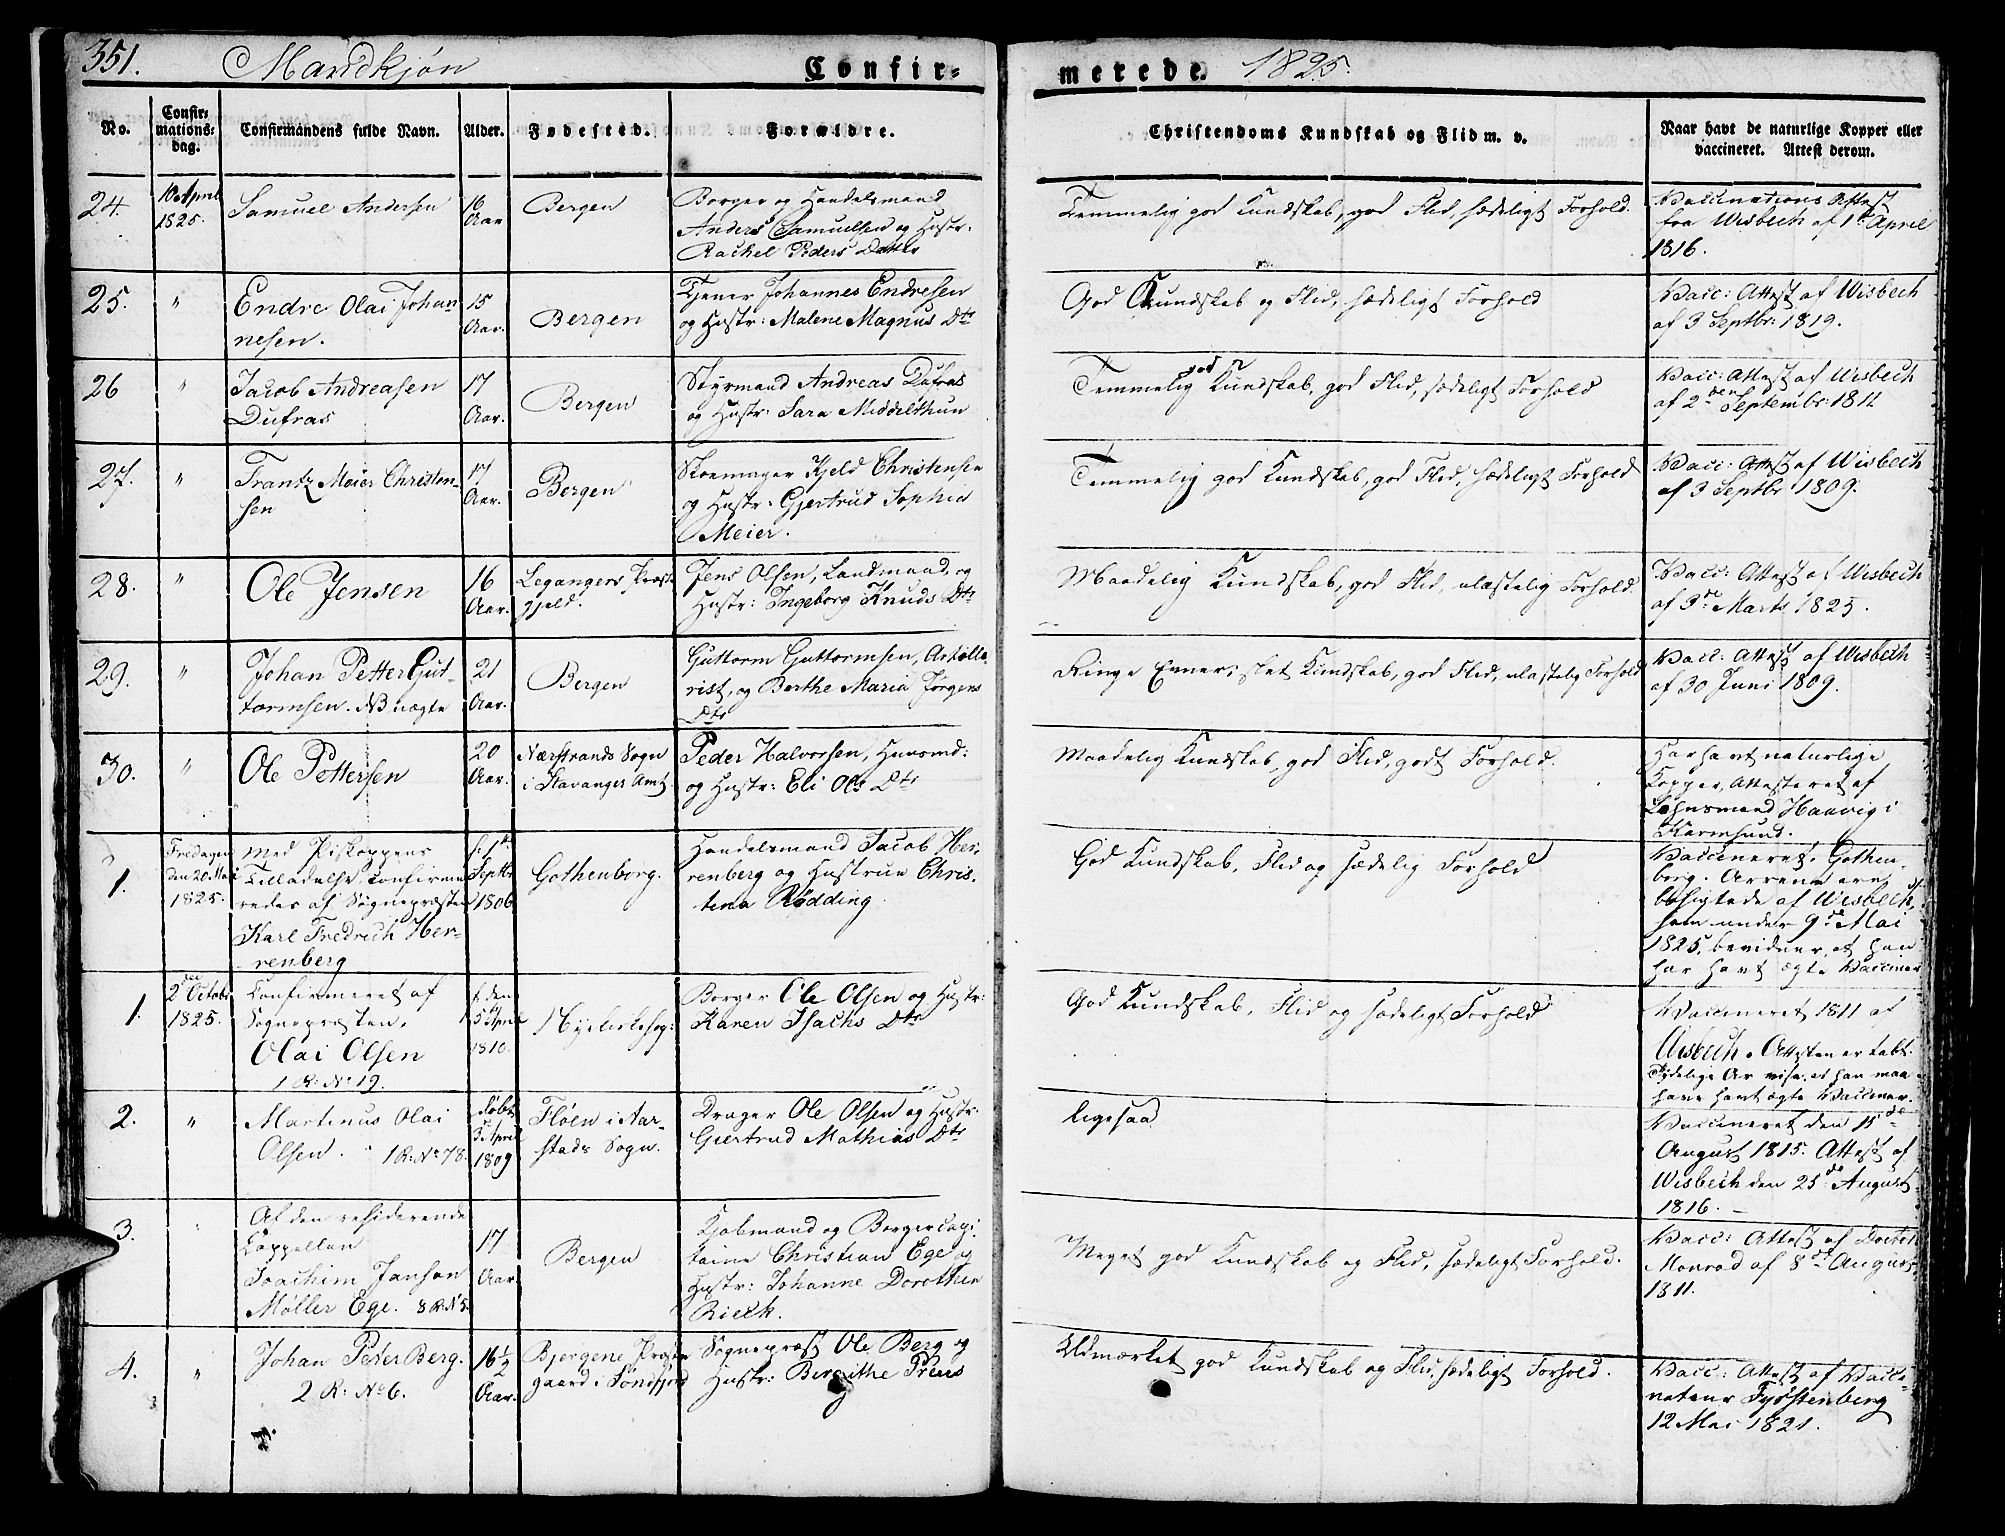 351. Mandkjøn Confir-
merede. 1825.
No.
Confir-
mations-
dag.
Confirmandens fulde Navn.
Alder.
Fødested.
Forældre.
Christendoms Kundskab og Flid m. v.
Naar havt de naturlige Kopper eller
vaccineret. Attest derom.
24.
10 April
1825.
Samuel Andersen
16
Aar
Bergen
Borger og Handelsmand
Anders Samuelsen og Hustr:
Rachel Peders Datter
Temmelig god Kundskab, god Flid, sædeligt Forhold.
Vaccinations Attest
fra Wisbech af 1st April
1816.
25.
"
Endre Olai Johan
nesen.
15
Aar.
Bergen
Tjener Johannes Endresen
og Hustr: Malene Magnus Dtr
God Kundskab og Flid, sædeligt Forhold
Vacc: Attest af Wisbech
af 3 Septbr: 1819.
26
"
Jacob Andreasen
Dufras
17
Aar.
Bergen
Styrmand Andreas Dufras
og Hustr: Sara Middelthun
Temmelig god Kundskab, god Flid, sædeligt Forhold
Vacc: Attest af Wisbech
af 2den Septembr: 1811
27.
"
Frantz Meier Christen-
sen
17
Aar.
Bergen
Skoemager Kjeld Christensen
og Hustr: Gjertrud Sophia
Meier.
Temmelig god Kundskab, god Flid, sædeligt Forhold
Vacc: Attest af Wisbech
af 3 Septbr 1809.
28.
"
Ole Jensen
16
Aar.
Leganger Præste
gjeld.
Jens Olsen, Landmand, og
Hustr: Ingeborg Knuds Dtr
Maadelig Kundskab, god Flid, ulastelig Forhold.
Vacc: Attest af Wisbech
af 9de Marts 1825.
29.
"
Johan Petter Gut-
tormsen. NB nægte
21
Aar.
Bergen
Guttorm Guttormsen, Artille-
rist, og Berthe Maria Jørgens
Dtr
Ringe Evner, slet Kundskab, god Flid, ulastelig Forhold
Vacc: Attest af Wisbech
af 30 Juni 1809.
30.
"
Ole Pettersen
20
Aar.
Nærstrands Sogn
i Stavanger Amt.
Peder Halvorsen, Huusmd:
og Hustr: Eli Ols Dtr
Maadelig Kundskab, god Flid, godt Forhold.
Har havt naturlige
Kopper, Attesteret af
Lehnsmand Haavig i
Karmsund.
1.
Fredagen
den 20 Mai
1825.
Med Biskoppens
Tilladelse, confirme
redes af Sognepræsten
Karl Fredrich Her-
renberg
f. 1st
Septbr
1806
Gothenborg.
Handelsmand Jacob Her-
renberg og Hustrue Chris-
tena Rødding
God Kundskab, Flid og sædelig Forhold
Vaccineret i Gothen-
borg. Arrene ere
besigtede af Wisbech,
som under 9de Mai
1825, bevidner, at han
har havt ægte Vacciner
1.
2den Octobr
1825.
Confirmeret af
Sognepræsten.
Olai Olsen
1 R: No 19.
f. den
5 April
1810.
Nyekirkesog:
Borger Ole Olsen og Hustr:
Karen Isachs Dtr
God Kundskab, Flid og sædeligt Forhold
Vaccineret 1811 af
Wisbech. Attesten er tabt.
Tydelige Ar vise, at han maa
have havt ægte Vacciner.
2.
"
Martinus Olai
Olsen. 1 R: No 78.
døbt
3 April
1809
Fløen i Aar-
stads Sogn.
Drager Ole Olsen og Hustr:
Giertrud Mathias Dtr
ligesaa
Vaccineret den 15de
August 1815. Attest af
Wisbech den 25de August
1816.
3.
"
Af den residerende
Cappellan
Joachim Janson
Møller Ege. 8 R: No 5.
17
Aar.
Bergen
Kjøbmand og Borgercapi-
taine Christian Ege og
Hustr: Johanne Dorothea
Rieck.
Meget god Kundskab og Flid, sædeligt Forhold.
Vacc: Attest af Doctor
Monrad af 8de August
1811.
4.
"
Johan Peter Berg.
2 R: No 6.
16 1/2
Aar.
Bjergene Præste
gaard i Søndfjord
Sognepræst Ole Berg og
Hustr: Bergithe Preus
Udmærket god Kundskab og Flid, sædeligt Forhold.
Vacc: Attest af Vacci-
nateur Fyrstenberg
12 Mai 1821.